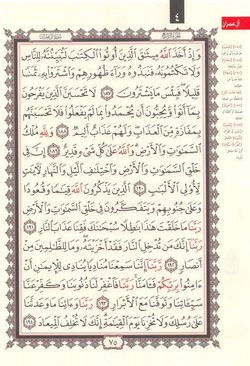 آل عمران
٤
وَإِذْ أَخَذَ اللَّهُ مِيثَاقَ الَّذِينَ أُوتُوا الْكِتَابَ لَتُبَيِّنُنَّهُ لِلنَّاسِ
وَلَا تَكْتُمُونَهُ فَنَبَذُوهُ وَرَاءَ ظُهُورِهِمْ وَاشْتَرَوْا بِهِ ثَمَنًا
قَلِيلًا فَبِئْسَ مَا يَشْتَرُونَ ١٨٧ لَا تَحْسَبَنَّ الَّذِينَ يَفْرَحُونَ
بِمَا أَتَوْا وَيُحِبُّونَ أَنْ يُحْمَدُوا بِمَا لَمْ يَفْعَلُوا فَلَا تَحْسَبَنَّهُمْ
بِمَفَازَةٍ مِنَ الْعَذَابِ وَلَهُمْ عَذَابٌ أَلِيمٌ ١٨٨ وَلِلَّهِ مُلْكُ
السَّمَاوَاتِ وَالْأَرْضِ وَاللَّهُ عَلَى كُلِّ شَيْءٍ قَدِيرٌ ١٨٩ إِنَّ فِي
خَلْقِ السَّمَاوَاتِ وَالْأَرْضِ وَاخْتِلَافِ اللَّيْلِ وَالنَّهَارِ لَآيَاتٍ
لِأُولِي الْأَلْبَابِ ١٩٠ الَّذِينَ يَذْكُرُونَ اللَّهَ قِيَامًا وَقُعُودًا
وَعَلَى جُنُوبِهِمْ وَيَتَفَكَّرُونَ فِي خَلْقِ السَّمَاوَاتِ وَالْأَرْضِ
رَبَّنَا مَا خَلَقْتَ هَذَا بَاطِلًا سُبْحَانَكَ فَقِنَا عَذَابَ النَّارِ ١٩١
رَبَّنَا إِنَّكَ مَنْ تُدْخِلِ النَّارَ فَقَدْ أَخْزَيْتَهُ وَمَا لِلظَّالِمِينَ مِنْ
أَنْصَارٍ ١٩٢ رَبَّنَا إِنَّنَا سَمِعْنَا مُنَادِيًا يُنَادِي لِلْإِيمَانِ أَنْ
آمِنُوا بِرَبِّكُمْ فَآمَنَّا رَبَّنَا فَاغْفِرْ لَنَا ذُنُوبَنَا وَكَفِّرْ عَنَّا
سَيِّئَاتِنَا وَتَوَفَّنَا مَعَ الْأَبْرَارِ ١٩٣ رَبَّنَا وَآتِنَا مَا وَعَدْتَنَا
عَلَى رُسُلِكَ وَلَا تُخْزِنَا يَوْمَ الْقِيَامَةِ إِنَّكَ لَا تُخْلِفُ الْمِيعَادَ ١٩٤
٧٥